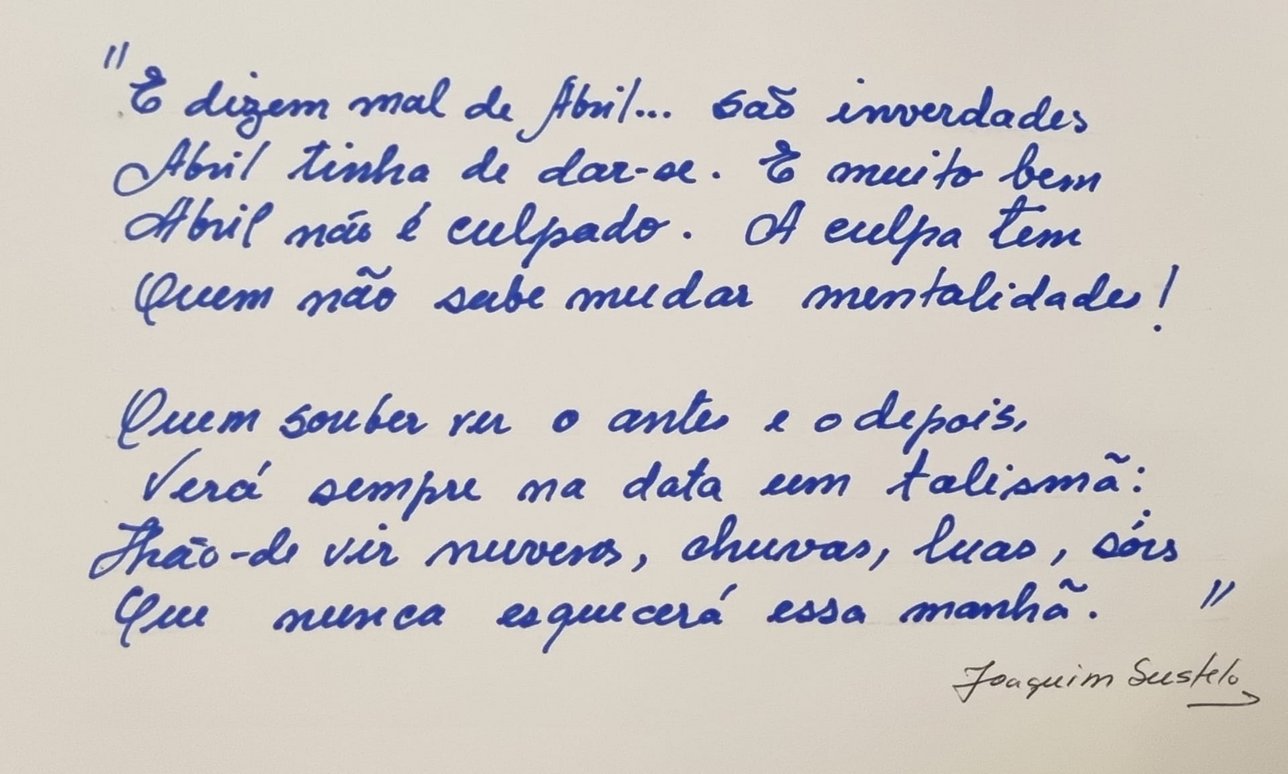 "E dizem mal de Abril... são inverdades
Abril tinha de dar-se. E muito bem
Abril não é culpado. A culpa tem
Quem não sabe mudar mentalidades!
Quem souber ver o antes e o depois,
Verá sempre na data um talismã:
Hão-de vir nuvens, chuvas, luas, sóis
Que nunca esquecerá essa manhã."
Joaquim Sustelo